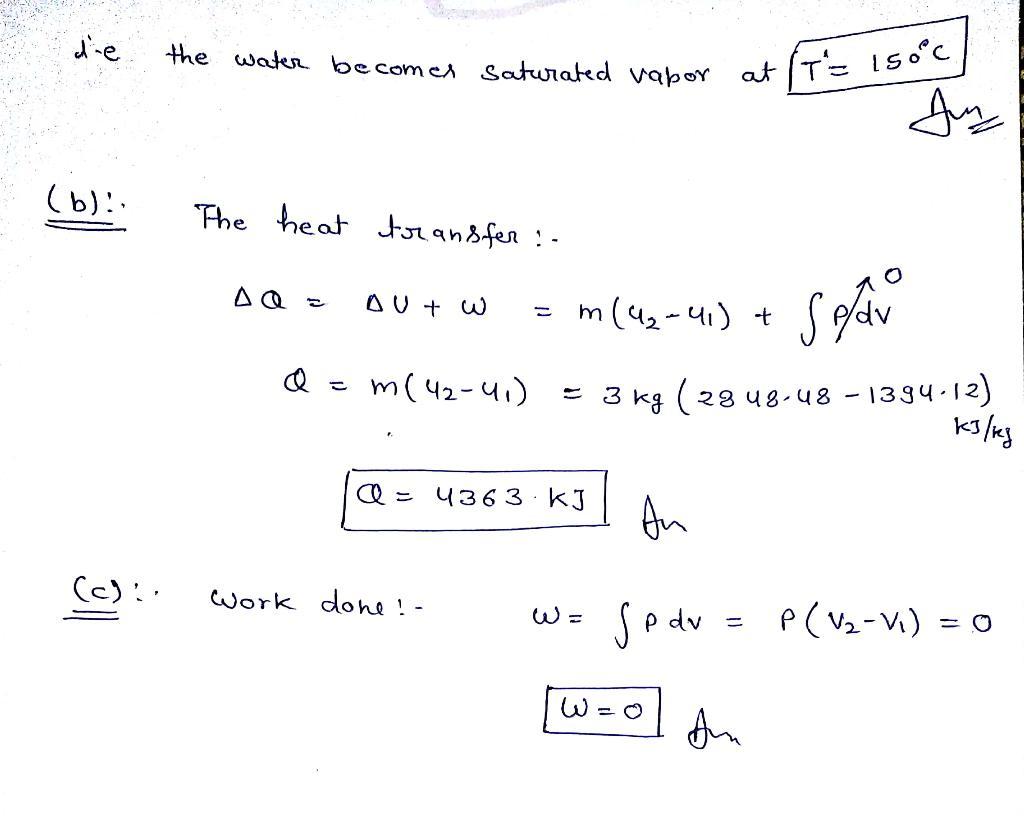 i.e the water becomes saturated vapor at T' = 150°C
Ans
(b):. The heat transfer :-
ΔQ = ΔU + W = m(u₂-u₁) + ∫pdv → 0
Q = m(u₂-u₁) = 3 kg (2848.48 - 1394.12) kJ/kg
Q = 4363 kJ An
(c):. Work done :- W = ∫ P dv = P(V₂-V₁) = 0
W = 0 An